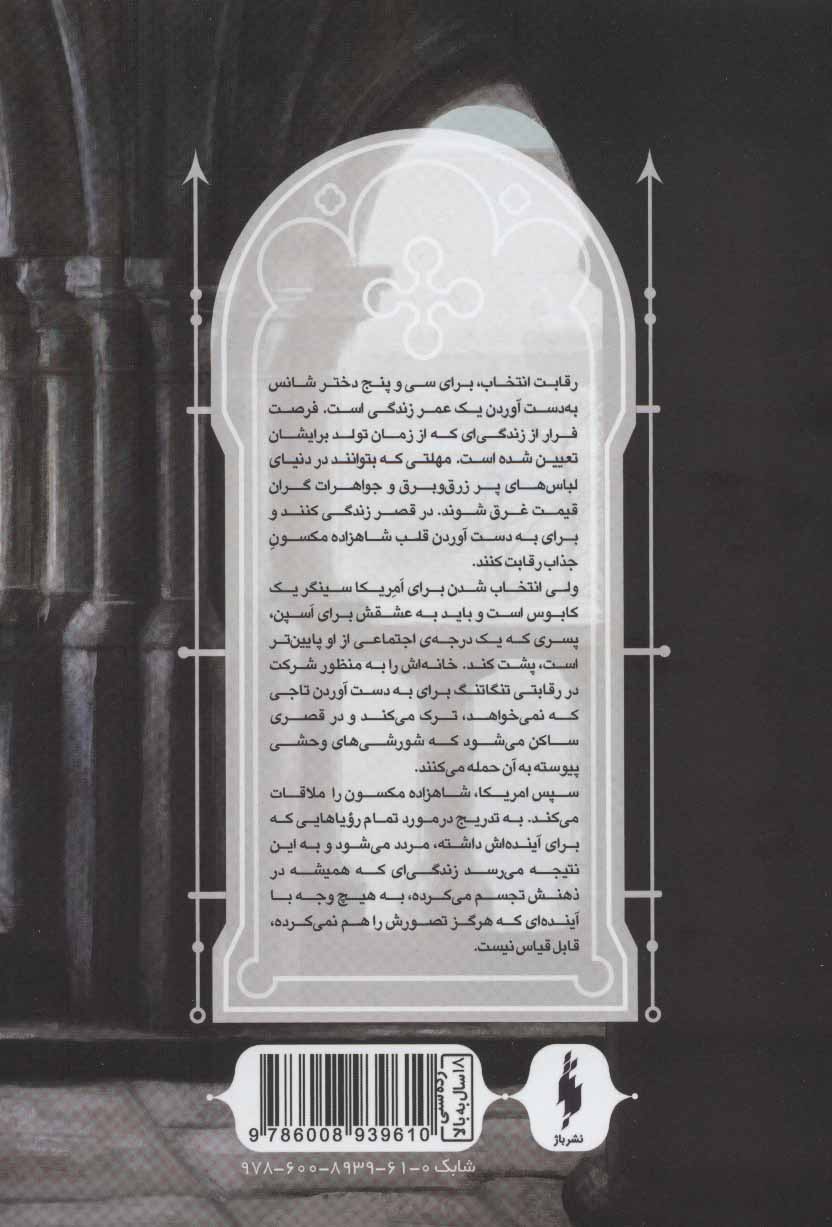 رقابت انتخاب، برای سی و پنج دختر شانس
به‌دست آوردن یک عمر زندگی است. فرصت
فرار از زندگی‌ای که از زمان تولد برایشان
تعیین شده است. مهلتی که بتوانند در دنیای
لباس‌های پر زرق‌وبرق و جواهرات گران
قیمت غرق شوند. در قصر زندگی کنند و
برای به دست آوردن قلب شاهزاده مکسونِ
جذاب رقابت کنند.
ولی انتخاب شدن برای اَمریکا سینگر یک
کابوس است و باید به عشقش برای اَسپن،
پسری که یک درجه‌ی اجتماعی از او پایین‌تر
است، پشت کند. خانه‌اش را به منظور شرکت
در رقابتی تنگاتنگ برای به دست آوردن تاجی
که نمی‌خواهد، ترک می‌کند و در قصری
ساکن می‌شود که شورشی‌های وحشی
پیوسته به آن حمله می‌کنند.
سپس امریکا، شاهزاده مکسون را ملاقات
می‌کند. به تدریج درمورد تمام رؤیاهایی که
برای آینده‌اش داشته، مردد می‌شود و به این
نتیجه می‌رسد زندگی‌ای که همیشه در
ذهنش تجسم می‌کرده، به هیچ وجه با
آینده‌ای که هرگز تصورش را هم نمی‌کرده،
قابل قیاس نیست.
رده‌سنی
۱۸سال‌به‌بالا
9 786008 939610
شابک ۰-۶۱-۸۹۳۹-۶۰۰-۹۷۸
نشر باژ